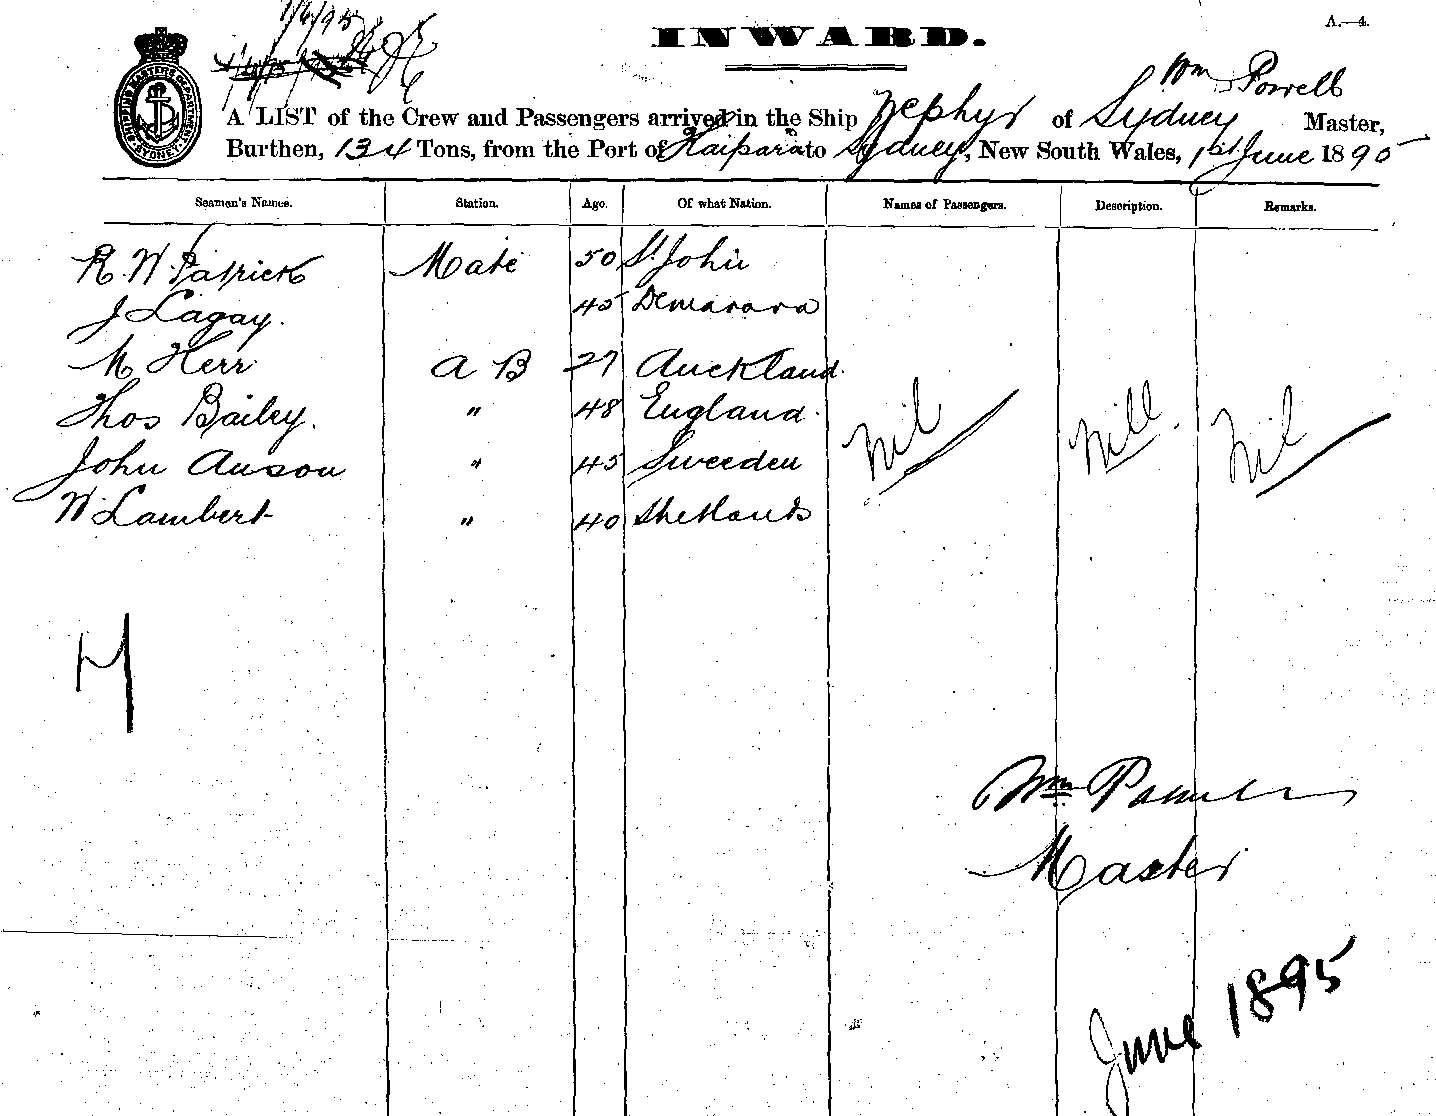 1/6/95
A.—4.
INWARD.
SHIPPING MASTER'S DEPARTMENT SYDNEY
Wm Powell
A LIST of the Crew and Passengers arrived in the Ship Zephyr of Sydney Master,
Burthen, 134 Tons, from the Port of Kaipara to Sydney, New South Wales, 1st June 1895
Seamen's Names. Station. Age. Of what Nation. Names of Passengers. Description. Remarks.
R. W Patrick Mate 50 St John
J Lagay. 45 Demarara
M Herr A B 27 Auckland.
Thos Bailey. " 48 England.
John Anson " 45 Sweeden
W Lambert " 40 Shetlands
Nil Nill. Nil
H
Wm Powell
Master
June 1895